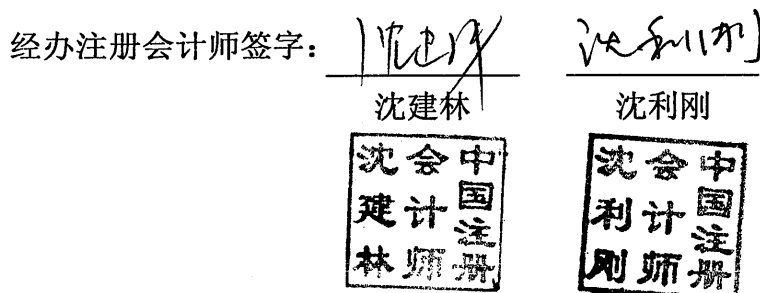 经办注册会计师签字： 沈建林 沈利刚
沈建林 沈利刚
中国注册会计师沈建林 中国注册会计师沈利刚